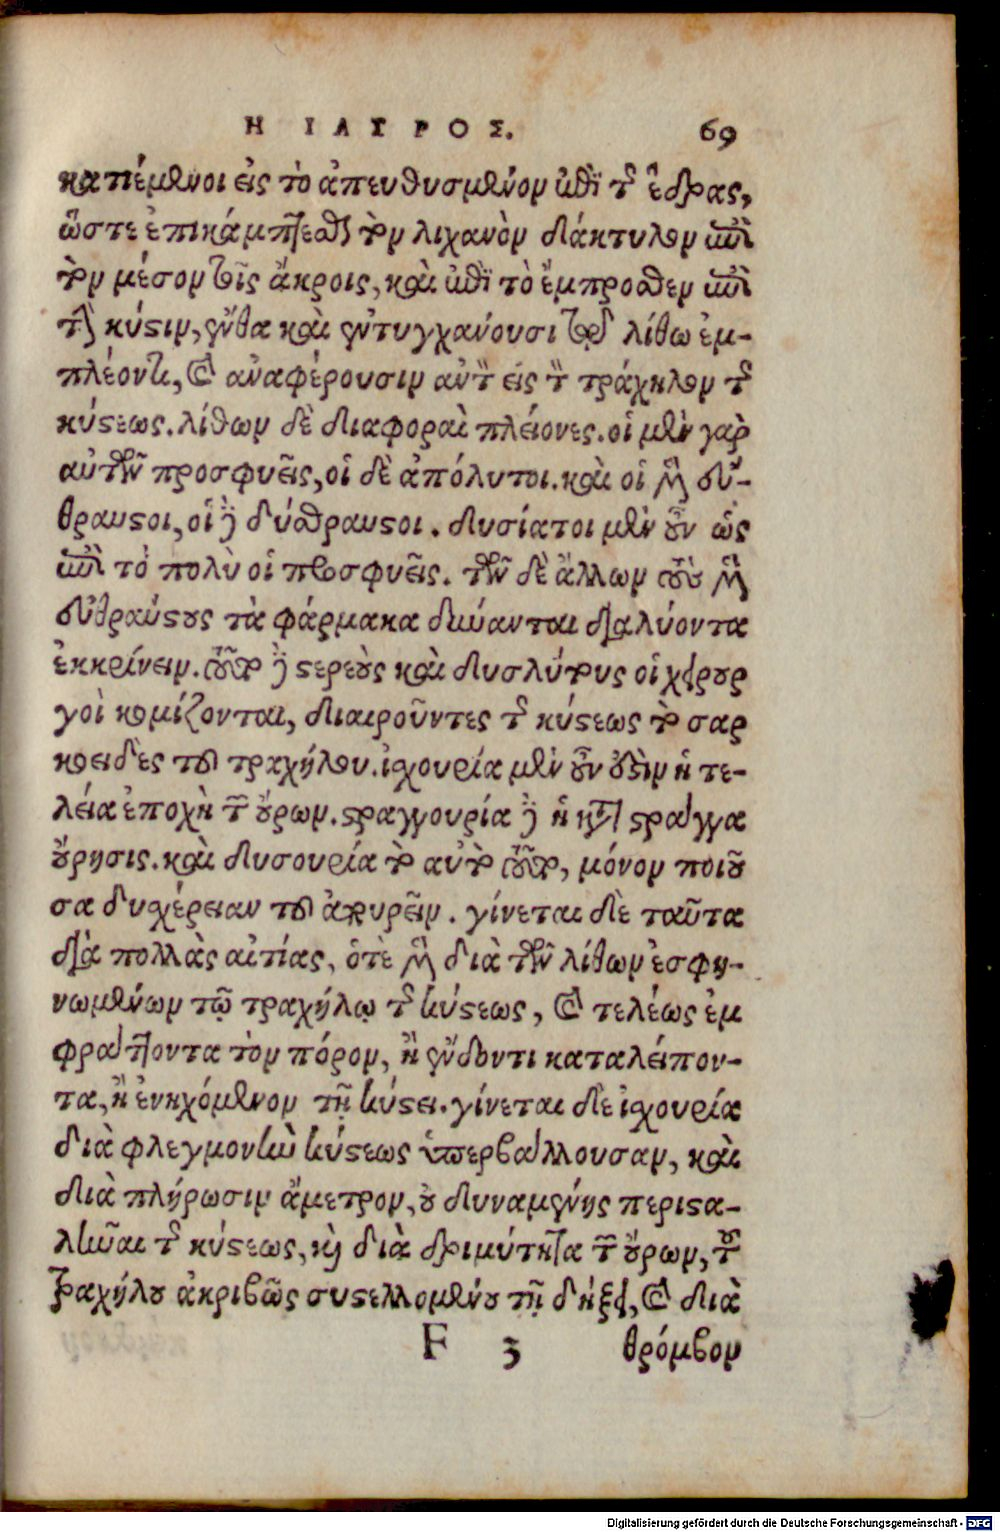 Η ΙΑΤΡΟΣ. 69
κατιέμενοι εἰς τὸ ἀπευθυσμένον ἐπὶ τῆς ἕδρας,
ὥστε ἐπικάμπτεσθαι τὸν λιχανὸν δάκτυλον ἐπὶ
τὸν μέσον τοῖς ἄκροις, καὶ ἐπὶ τὸ ἔμπροσθεν ἐπὶ
τὴν κύστιν, ἔνθα καὶ ἐντυγχάνουσι τῷ λίθω ἐμ-
πλέοντι, καὶ ἀναφέρουσιν αὐτὸν εἰς τὸν τράχηλον τῆς
κύστεως. λίθων δὲ διαφοραὶ πλείονες. οἱ μὲν γὰρ
αὐτῶν προσφυεῖς, οἱ δὲ ἀπόλυτοι. καὶ οἱ μὲν εὔ-
θραυστοι, οἱ δὲ δύσθραυστοι. δυσίατοι μὲν οὖν ὡς
ἐπὶ τὸ πολὺ οἱ προσφυεῖς. τῶν δὲ ἄλλων τοὺς μὲν
εὐθραύστους τὰ φάρμακα δύνανται διαλύοντα
ἐκκρίνειν. τοὺς δὲ στερεοὺς καὶ δυσλύτους οἱ χειρουρ
γοὶ κομίζονται, διαιροῦντες τῆς κύστεως τὸ σαρ
κοειδὲς τοῦ τραχήλου. ἰσχουρία μὲν οὖν ἐστὶν ἡ τε-
λεία ἐποχὴ τῶν οὔρων. στραγγουρία δὲ ἡ κατὰ στράγγα
οὔρησις. καὶ δυσουρία τὸ αὐτὸ τοῦτο, μόνον ποιοῦ
σα δυσχέρειαν τοῦ ἀπουρεῖν. γίνεται δὲ ταῦτα
διὰ πολλὰς αἰτίας, ὁτὲ μὲν διὰ τῶν λίθων ἐσφη-
νωμένων τῷ τραχήλῳ τῆς κύστεως, καὶ τελέως ἐμ
φράττοντα τὸν πόρον, ἢ ἐνδόντι καταλείπον-
τα, ἢ ἐνηχόμενον τῇ κύστει. γίνεται δὲ ἰσχουρία
διὰ φλεγμονὴν κύστεως ὑπερβάλλουσαν, καὶ
διὰ πλήρωσιν ἄμετρον, οὐ δυναμένης περιστα-
λῆναι τῆς κύστεως, καὶ διὰ δριμύτητα τῶν οὔρων, τοῦ
τραχήλου ἀκριβῶς συστελλομένου τῇ δήξει, καὶ διὰ
F 3 θρόμβον
Digitalisierung gefördert durch die Deutsche Forschungsgemeinschaft - DFG